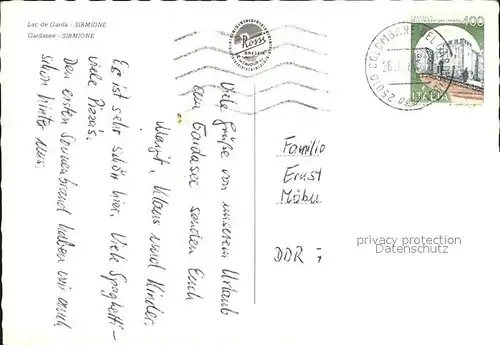 Lac de Garda - SIRMIONE
Gardasee - SIRMIONE
Rossi
100
ITALIA
Viele Grüße von unserem Urlaub
am Gardasee senden Euch
Margit, Klaus und Kinder.
Es ist sehr schön hier. Viel Spaghetti -
viele Pizza's.
Den ersten Sonnenbrand haben wir auch
schon hinter uns.
Familie
Ernst
DDR
privacy protection
Datenschutz